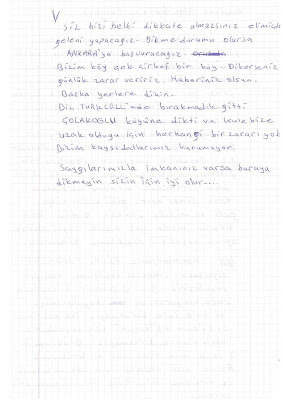 V
Siz bizi belki dikkate almazsınız elimizde
geleni yapacağız. Dikme durumu olursa
ANKARA'ya başvuracağız.
Bizim köy çok çirkef bir köy. Dikerseniz
günlük zarar veririz. Haberiniz olsun.
Başka yerlere dikin.
Biz TURKCELL'inde bırakmadık gitti
ÇOLAKOĞLU köyüne dikti ve kule bize
uzak olduğu için herhangi bir zararı yok
Bizim kaysı dallarımız kurumuyor.
Saygılarımızla imkanınız varsa buraya
dikmeyin sizin için iyi olur....